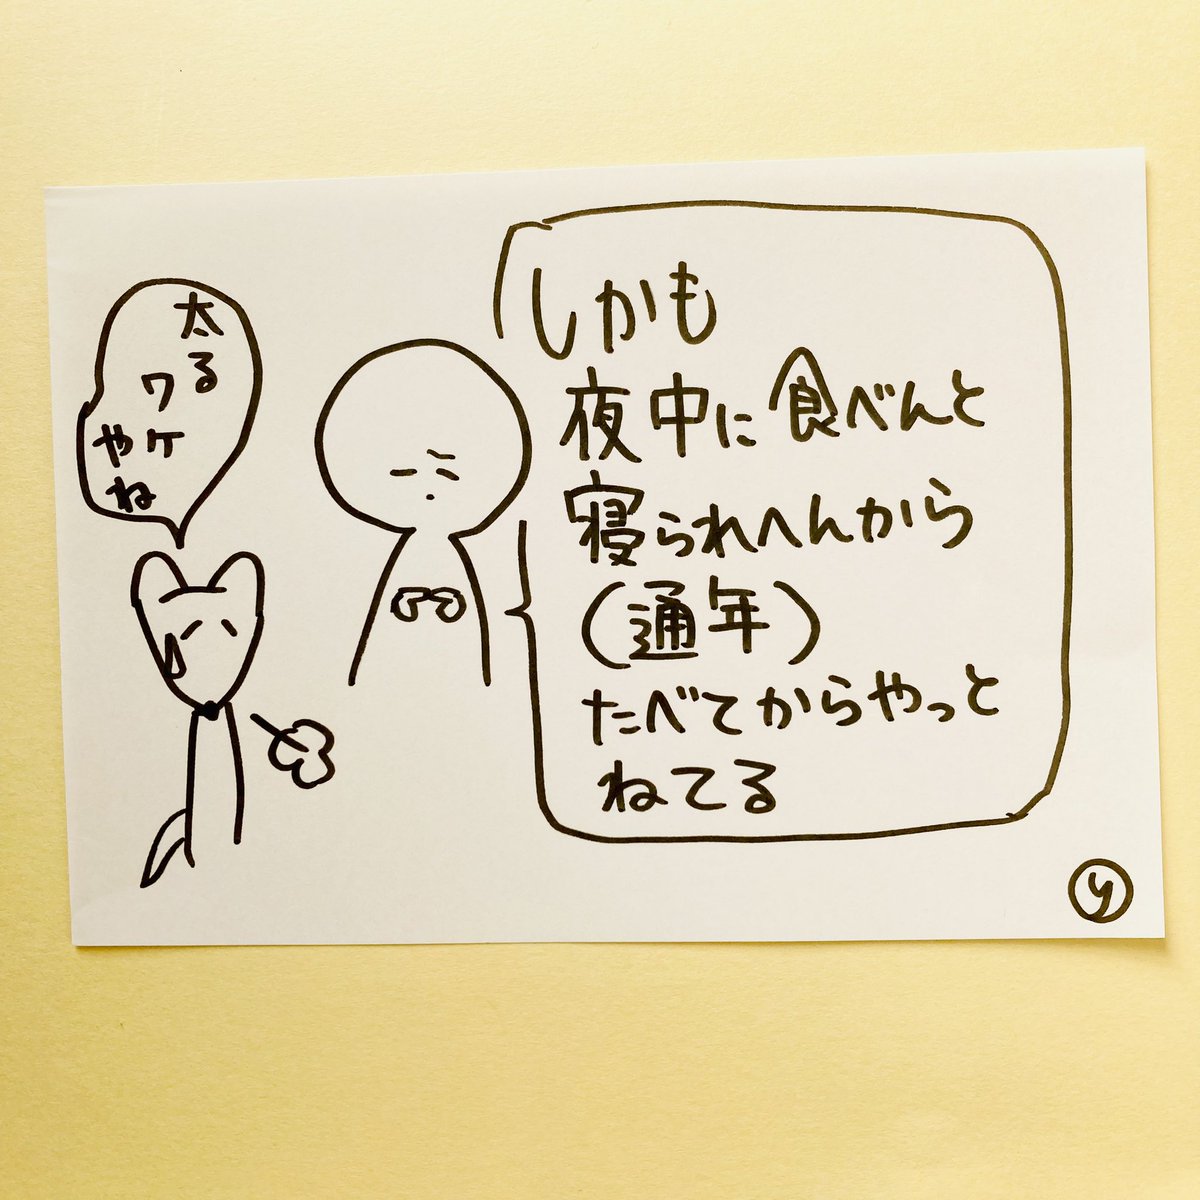 しかも
夜中に食べんと
寝られへんから
(通年)
たべてからやっと
ねてる
太る
ワケ
やね
y